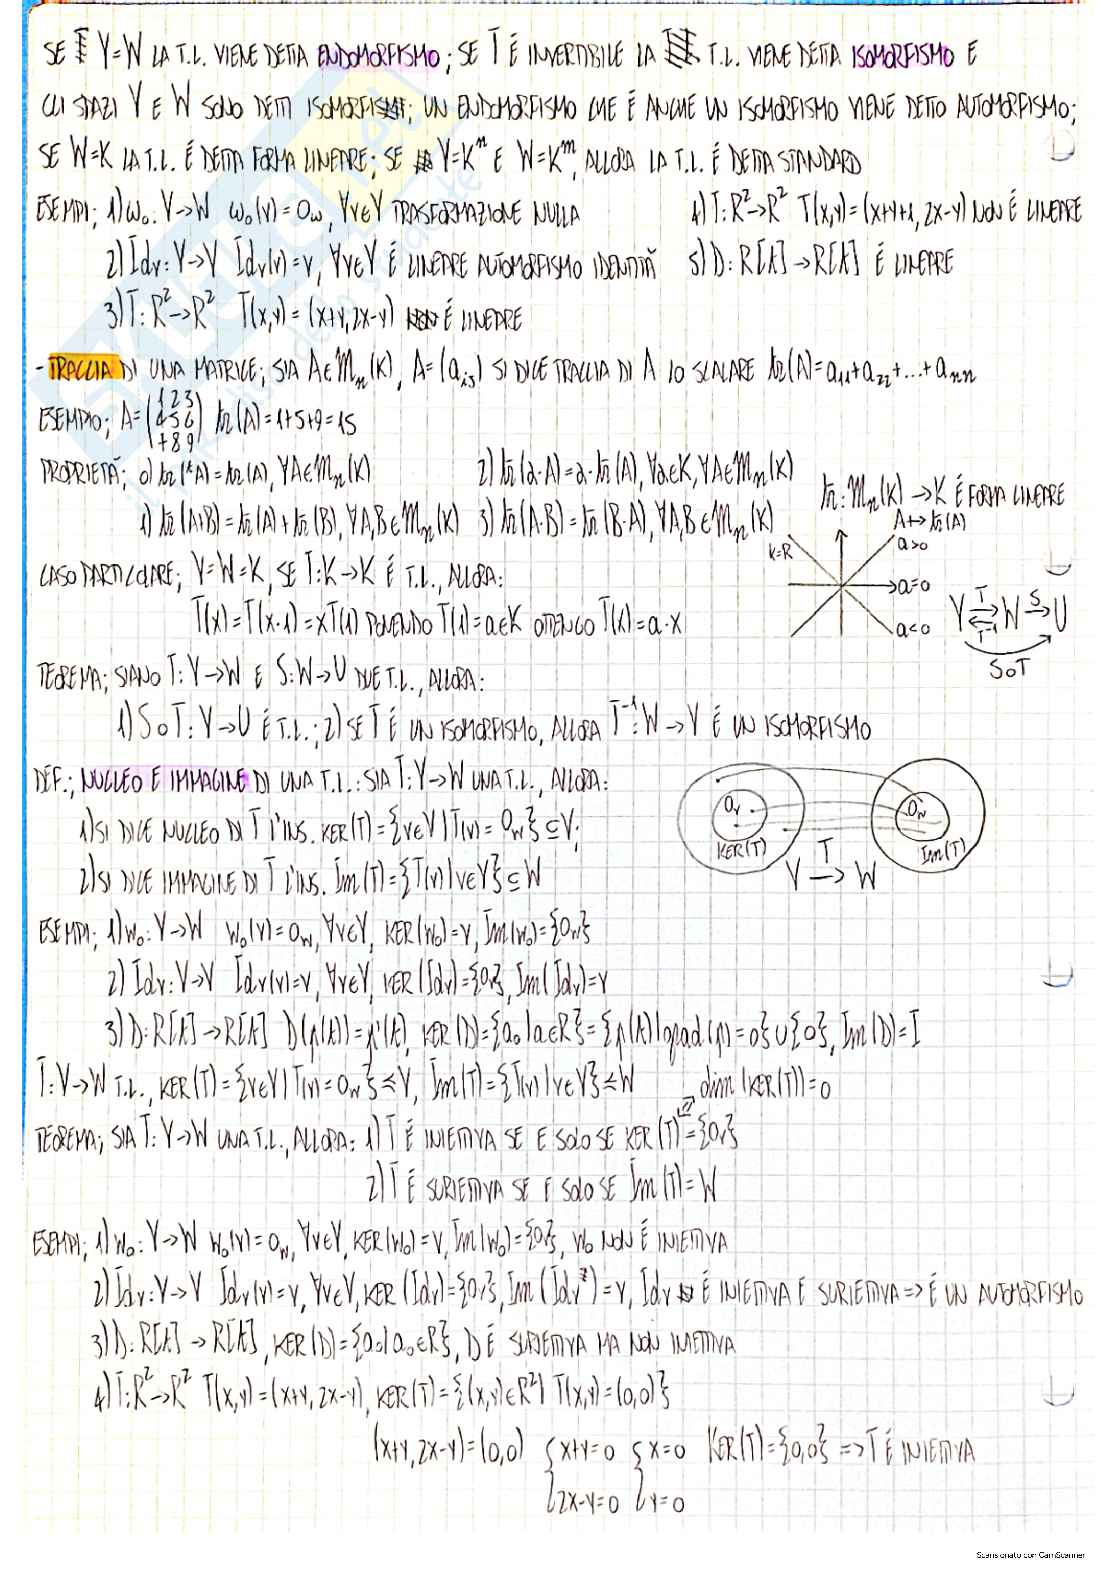 SE V=W LA T.L. VIENE DETTA ENDOMORFISMO; SE T É INVERTIBILE LA T.L. VIENE DETTA ISOMORFISMO E
GLI SPAZI V E W SONO DETTI ISOMORFI; UN ENDOMORFISMO CHE É ANCHE UN ISOMORFISMO VIENE DETTO AUTOMORFISMO;
SE W=K LA T.L. É DETTA FORMA LINEARE; SE V=Kⁿ E W=Kᵐ, ALLORA LA T.L. É DETTA STANDARD
ESEMPI; 1) W₀: V→W W₀(v)=0w, ∀v∈V TRASFORMAZIONE NULLA
4) T: R²→R² T(x,y)=(x+y+1, 2x-y) NON É LINEARE
2) Idv: V→V Idv(v)=v, ∀v∈V É LINEARE AUTOMORFISMO IDENTITÀ
5) D: R[t]→R[t] É LINEARE
3) T: R²→R² T(x,y)=(x+y, 2x-y) É LINEARE
- TRACCIA DI UNA MATRICE; SIA A∈Mn(K), A=(aᵢⱼ) SI DICE TRACCIA DI A LO SCALARE tr(A)=a₁₁+a₂₂+...+aₙₙ
ESEMPIO; A=(1 2 3
4 5 6
7 8 9) tr(A)=1+5+9=15
PROPRIETÀ; 0) tr(ᵗA)=tr(A), ∀A∈Mn(K) 2) tr(a·A)=a·tr(A), ∀a∈K, ∀A∈Mn(K)
1) tr(A+B)=tr(A)+tr(B), ∀A,B∈Mn(K) 3) tr(A·B)=tr(B·A), ∀A,B∈Mn(K)
tr: Mn(K)→K É FORMA LINEARE
A↦tr(A)
K=R
a>0
a=0
a<0
CASO PARTICOLARE; V=W=K, SE T: K→K É T.L., ALLORA:
T(x)=T(x·1)=xT(1) PONENDO T(1)=a∈K OTTENGO T(x)=a·x
V T W S U
T⁻¹
S∘T
TEOREMA; SIANO T: V→W E S: W→U DUE T.L., ALLORA:
1) S∘T: V→U É T.L.; 2) SE T É UN ISOMORFISMO, ALLORA T⁻¹: W→V É UN ISOMORFISMO
DEF.; NUCLEO E IMMAGINE DI UNA T.L.: SIA T: V→W UNA T.L., ALLORA:
1) SI DICE NUCLEO DI T L'INS. KER(T)={v∈V|T(v)=0w}⊆V;
2) SI DICE IMMAGINE DI T L'INS. Im(T)={T(v)|v∈V}⊆W
0v
KER(T)
0w
Im(T)
T
V → W
ESEMPI; 1) W₀: V→W W₀(v)=0w, ∀v∈V, KER(W₀)=V, Im(W₀)={0w}
2) Idv: V→V Idv(v)=v, ∀v∈V, KER(Idv)={0v}, Im(Idv)=V
3) D: R[t]→R[t] D(p(t))=p'(t), KER(D)={a₀|a∈R}={p(t)|grad(p)=0}∪{0}, Im(D)=I
T: V→W T.L., KER(T)={v∈V|T(v)=0w}≤V, Im(T)={T(v)|v∈V}≤W
dim(KER(T))=0
TEOREMA; SIA T: V→W UNA T.L., ALLORA: 1) T É INIETTIVA SE E SOLO SE KER(T)={0v}
2) T É SURIETTIVA SE E SOLO SE Im(T)=W
ESEMPI; 1) W₀: V→W W₀(v)=0w, ∀v∈V, KER(W₀)=V, Im(W₀)={0v}, W₀ NON É INIETTIVA
2) Idv: V→V Idv(v)=v, ∀v∈V, KER(Idv)={0v}, Im(Idv)=V, Idv É INIETTIVA E SURIETTIVA => É UN AUTOMORFISMO
3) D: R[t]→R[t], KER(D)={a₀|a₀∈R}, D É SURIETTIVA MA NON INIETTIVA
4) T: R²→R² T(x,y)=(x+y, 2x-y), KER(T)={(x,y)∈R²| T(x,y)=(0,0)}
(x+y, 2x-y)=(0,0) {x+y=0 {x=0 KER(T)={0,0} => T É INIETTIVA
2x-y=0 y=0
Scansionato con CamScanner